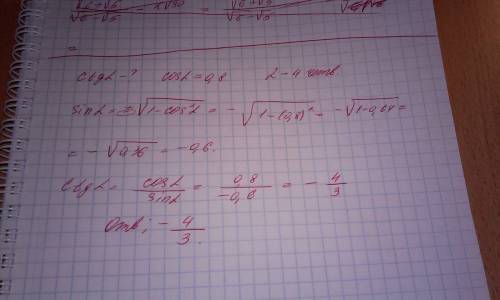 √6+√5 √6+√5
√6-√5 √6-√5
=
ctgα-? cosα=0,8 α-4 четв.
sinα=±√1-cos²α = -√1-(0,8)² = -√1-0,64 =
= -√0,36 = -0,6.
ctgα= cosα/sinα = 0,8/-0,6 = -4/3
Отв; -4/3.